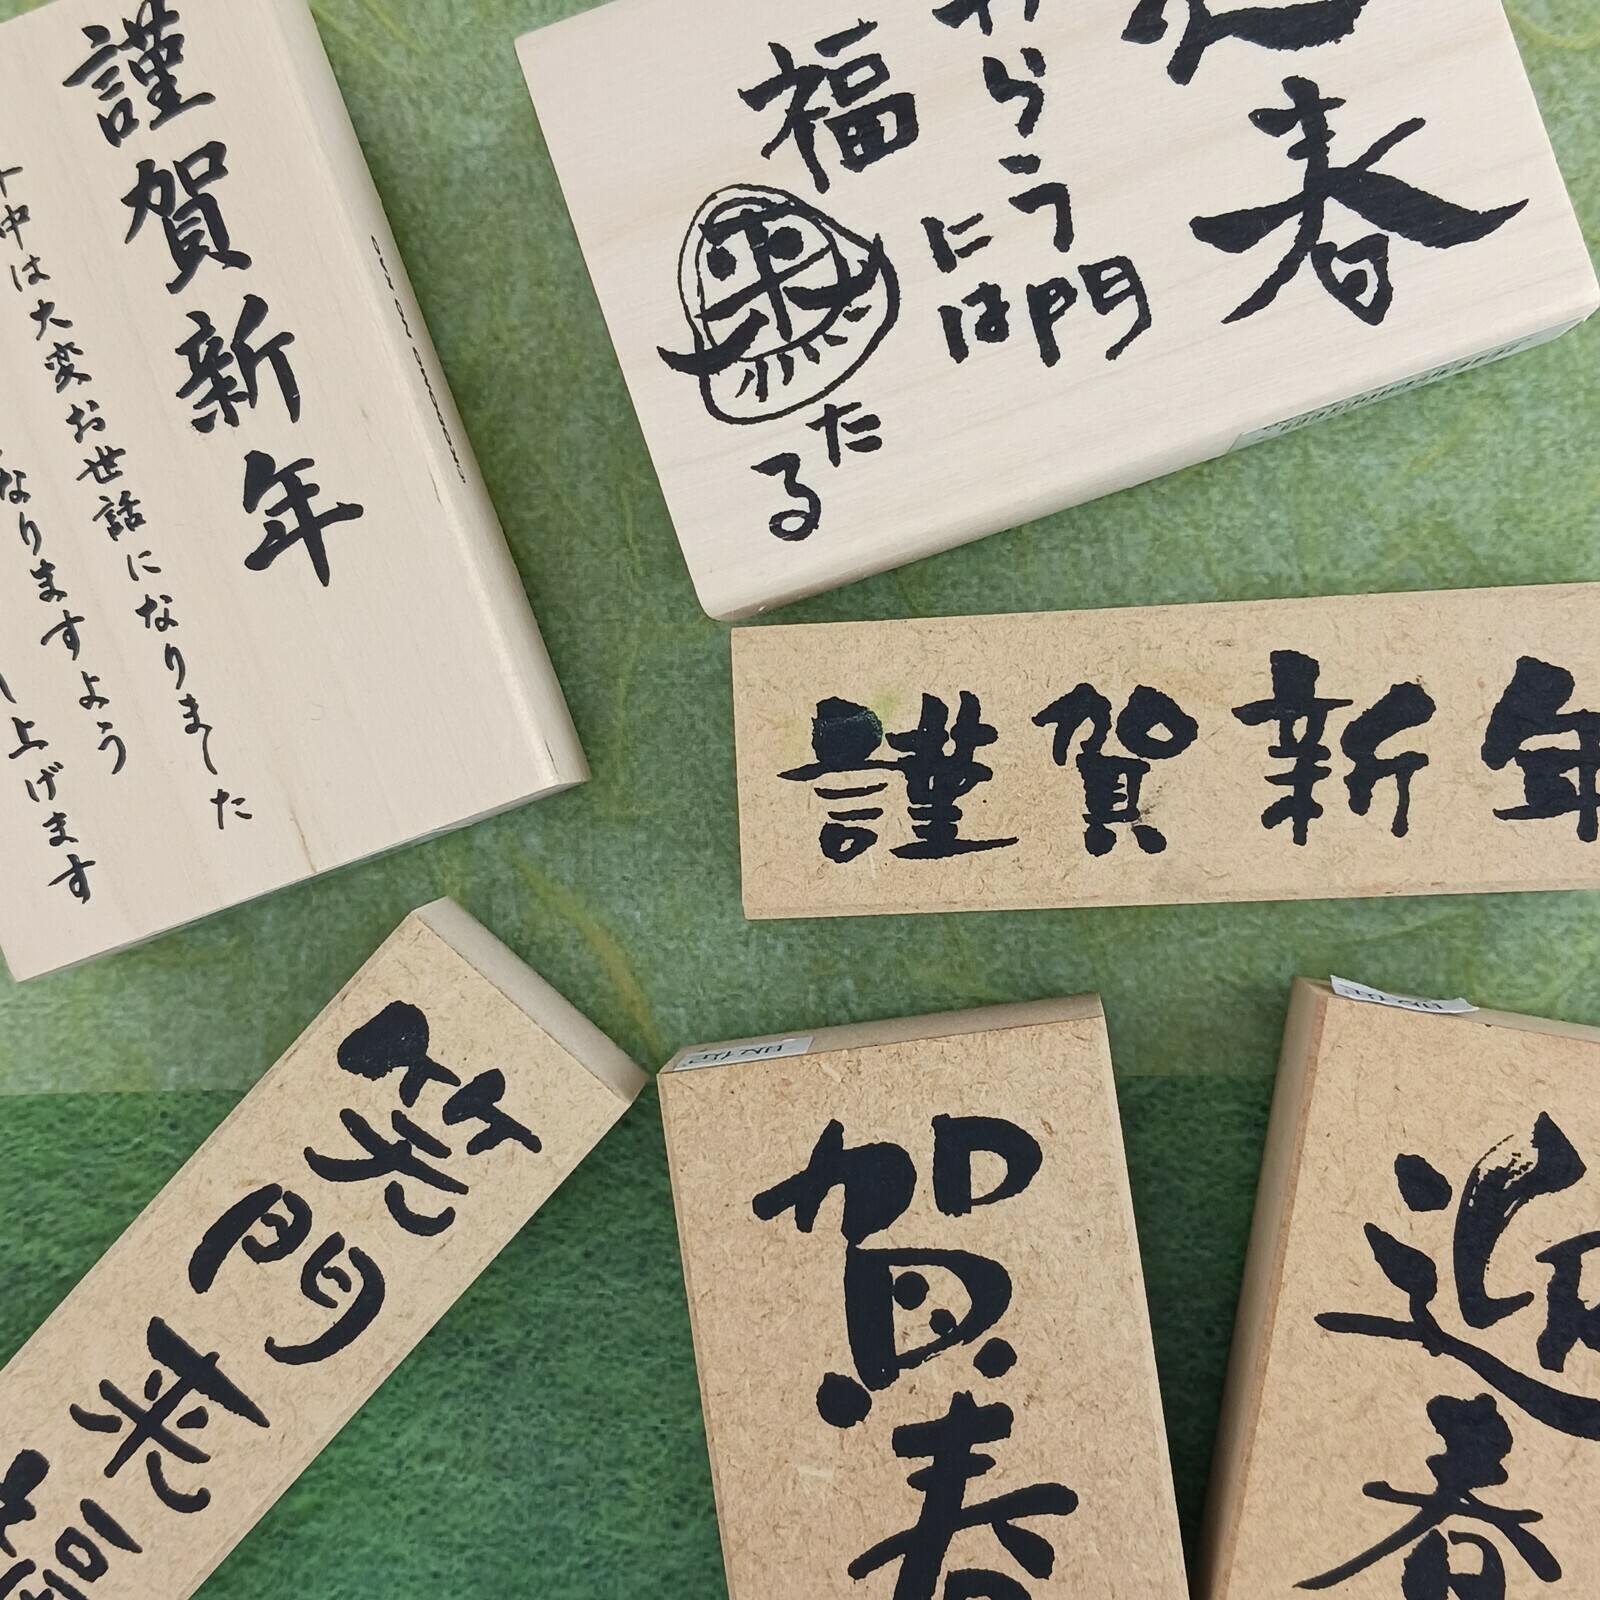 謹賀新年
中は大変お世話になりました
なりますよう
し上げます
春
わらう
門には
福
来
たる
謹賀新年
笑門来福
賀春
迎春